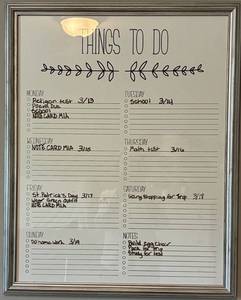 THINGS TO DO
MONDAY
Religion test 3/13
Poem Due
School
NOTE CARD MLA
TUESDAY
School 3/14
WEDNESDAY
NOTE CARD MLA 3/15
THURSDAY
Math test 3/16
FRIDAY
St. Patrick's Day 3/17
Wear Green Outfit
NOTE CARD MLA
SATURDAY
Going Shopping for Trip 3/18
SUNDAY
Do home work 3/19
NOTES
Build Egg Chair
Pack for Trip
Study for test